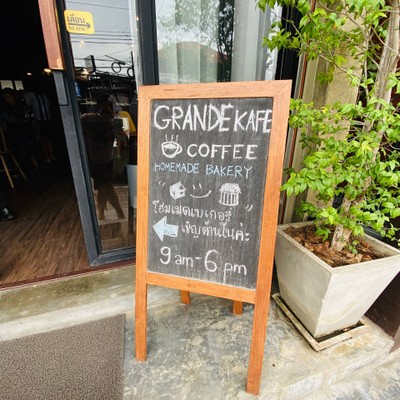 เลื่อน
GRANDE KAFE
COFFEE
HOMEMADE BAKERY
โฮมเมดเบเกอรี่
เชิญด้านในค่ะ
9 am - 6 pm